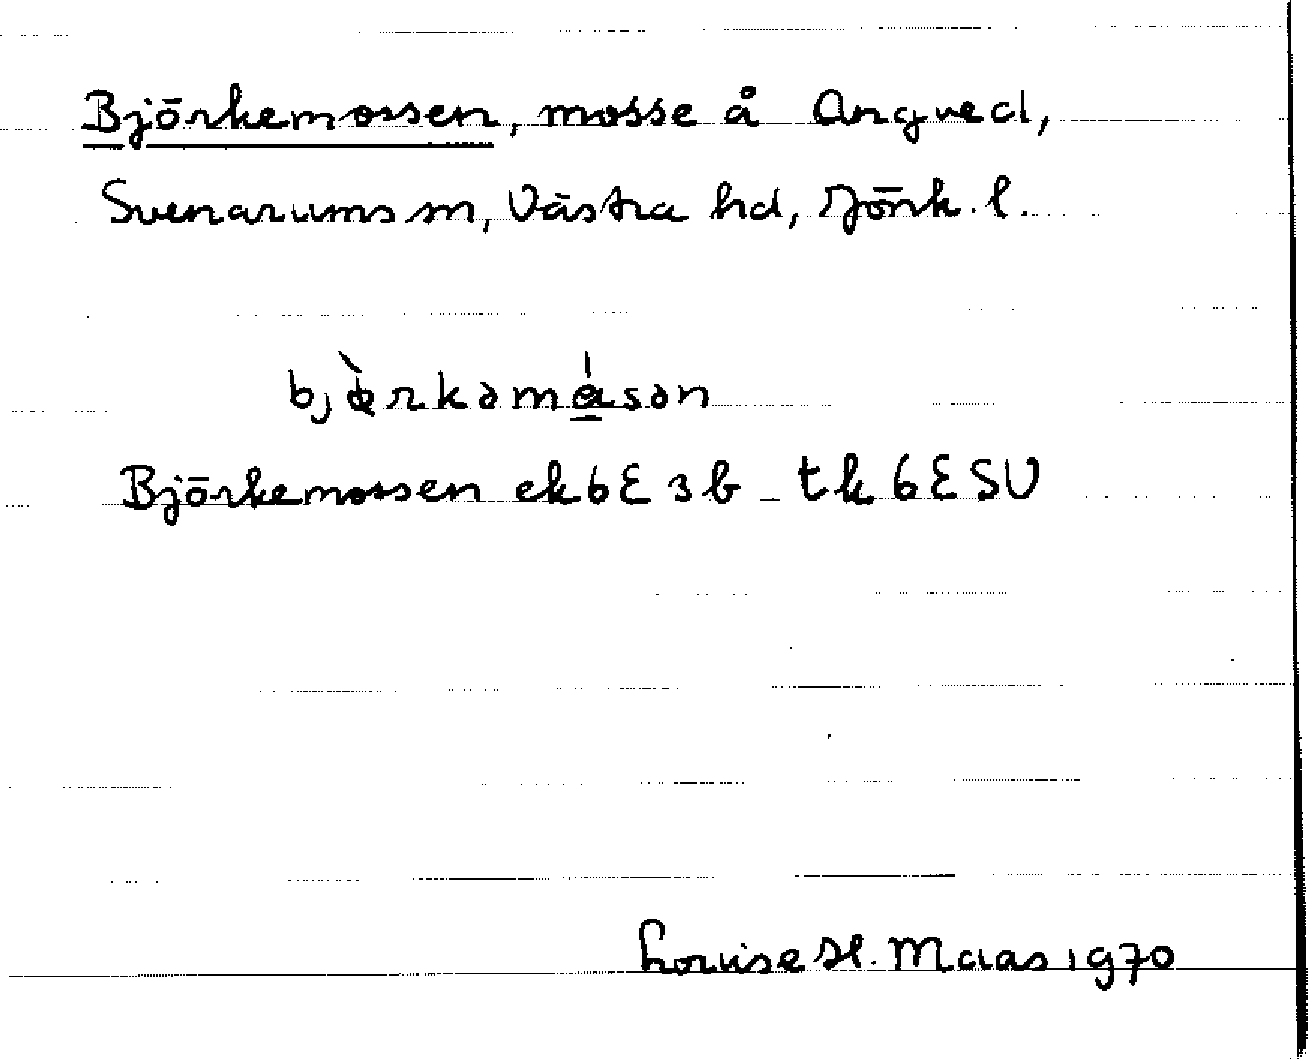 Björkemossen, mosse å Angved,
Svenarums sn, Västra hd, Jönk. l.
bjɵ̀rkəmásən
Björkemossen ek 6E 3b - tk 6E SV
Louise H. Maas 1970